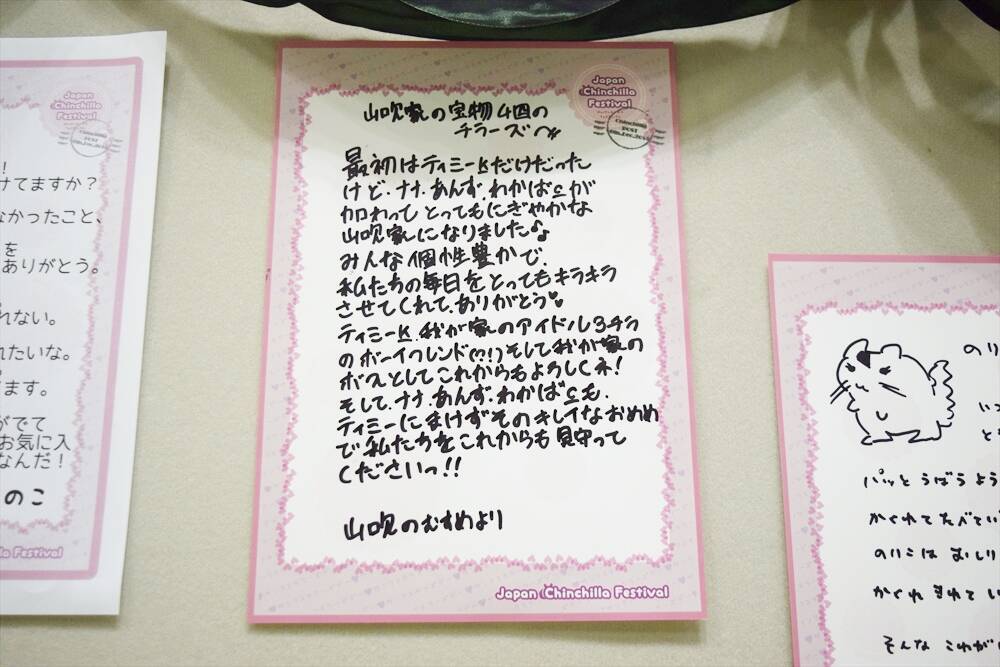 ！
けてますか？
なかったこと、
を
ありがとう。
れない。
れたいな。
ます。
がでて
お気に入
なんだ！
のこ
Chinchilla Festival
Japan
Chinchilla
Festival
山吹家の宝物4匹の
チラーズへ
最初はティミーKだけだった
けど、ナナ、あんず、わかばcが
加わって とってもにぎやかな
山吹家になりました♪
みんな個性豊かで、
私たちの毎日をとってもキラキラ
させてくれて、ありがとう
ティミーK、我が家のアイドル3チラ
のボーイフレンド(?!)そして我が家の
ボスとしてこれからもよろしくネ！
そして、ナナ、あんず、わかばcも、
ティミーにまけずそのキレイなおめめ
で私たちをこれからも見守って
くださいっ!!
山吹のむすめより
Japan Chinchilla Festival
のり
いつ
と
パッと うばうよう
かくれてたべてい
のりこは おしり
かくれ きれてい
そんな これが